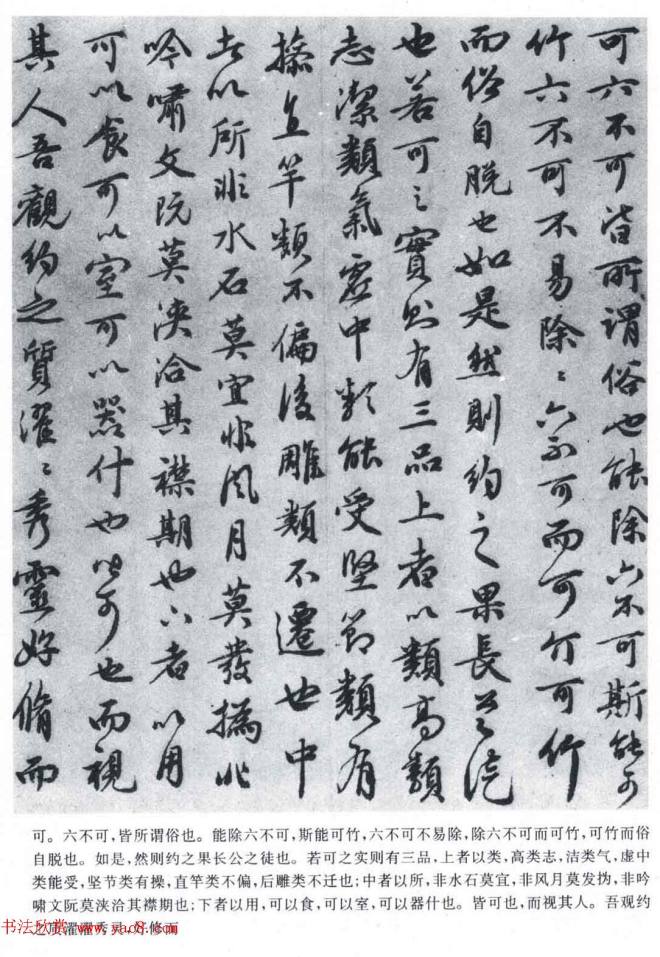 可六不可皆所谓俗也能除六不可斯能可
竹六不可不易除〻六不可而可竹可竹
而俗自脱也如是然則约之果長公之徒
也若可之實则有三品上者以類高類
志潔類氣虚中類能受堅節類有
操直竿類不偏後雕類不遷也中
者以所非水石莫宜非风月莫發撝非
吟嘯文阮莫浹洽其襟期也下者以用
可以食可以室可以器什也皆可也而視
其人吾觀约之質濯〻秀靈好脩而
可。六不可，皆所谓俗也。能除六不可，斯能可竹，六不可不易除，除六不可而可竹，可竹而俗
自脱也。如是，然则约之果长公之徒也。若可之实则有三品，上者以类，高类志，洁类气，虚中
类能受，坚节类有操，直竿类不偏，后雕类不迁也；中者以所，非水石莫宜，非风月莫发㧑，非吟
啸文阮莫浃洽其襟期也；下者以用，可以食，可以室，可以器什也。皆可也，而视其人。吾观约
之质濯濯秀灵 修而
书法欣赏 www.yac8.com